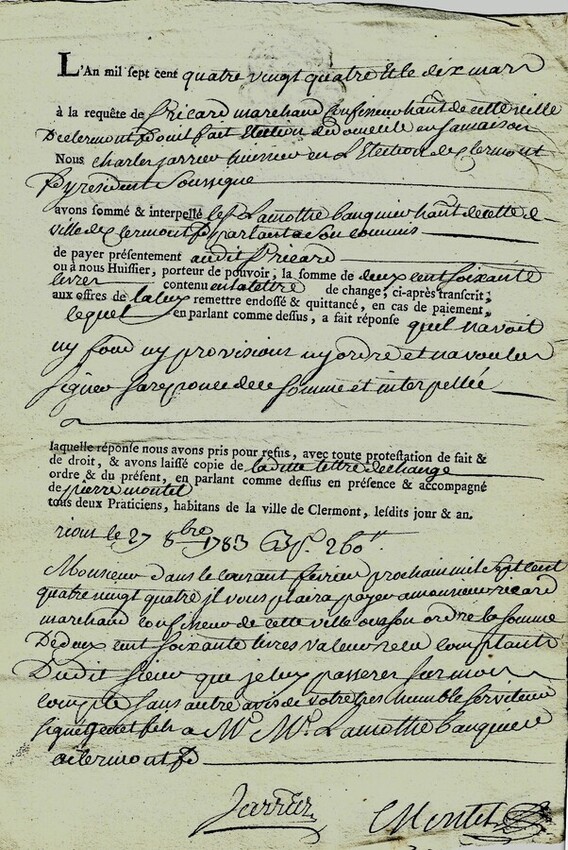 L'An mil sept cent quatre vingt quatre & le dix mars
à la requête de Sr ricard marchand Confiseur hant de cette ville
De clermont fd ouil fait Election de domicile en sa maison
Nous Charles jarrier huissier en L'Election de Clermont
fd y resident Soussigne
avons sommé & interpellé le Sr Lamothe banquier hant de cette d
ville de Clermont fd parlant a Son Commis
de payer présentement audit Sr ricard
ou à nous Huissier, porteur de pouvoir, la somme de deux cent soixante
livres contenu en la lettre de change, ci-après transcrit;
aux offres de la leur remettre endossé & quittancé, en cas de paiement,
lequel en parlant comme dessus, a fait réponse quel navoit
ny fond ny provision ny ordre et na voulu
Signer sa reponce de ce Somme et interpellée
laquelle réponse nous avons pris pour refus, avec toute protestation de fait &
de droit, & avons laissé copie de laditte lettre de change
ordre & du présent, en parlant comme dessus en présence & accompagné
de pierre montel
tous deux Praticiens, habitans de la ville de Clermont, lesdits jour & an.
riom le 27 8bre 1783 B.P. 260tt
Monsieur dans le courant fevrier prochain mil Sept Cent
quatre vingt quatre jl vous plaira payer a monsieur ricard
marchand Confiseur de cette ville ou a son ordre la somme
De deux cent soixante livres valeur recu comptant
Dudit Sieur que je luy passeres sur mon
compte sans autre avis de votre tres humble serviteur
Signé a Mr Mr Lamothe banquier
a clermont fd
Jarrier Montel